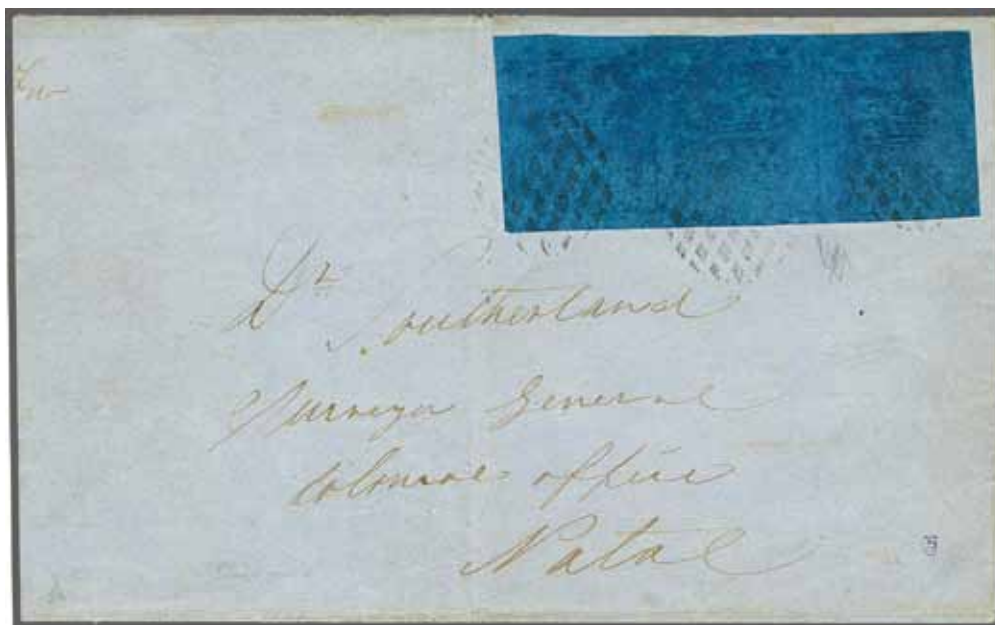 Dr Sutherland
Surveyor General
Colonial office
Natal